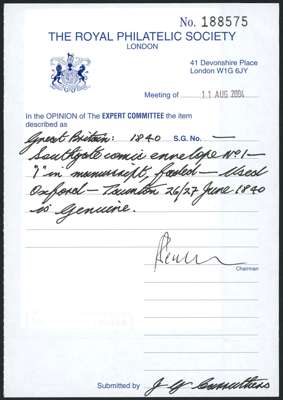 No. 188575
THE ROYAL PHILATELIC SOCIETY
LONDON
41 Devonshire Place
London W1G 6JY
Meeting of 11 AUG 2004
In the OPINION of The EXPERT COMMITTEE the item
described as
Great Britain: 1840 S.G. No. —
Southgate comic envelope No 1 —
"1" in manuscript, faded — Used
Oxford — Taunton 26/27 June 1840
is Genuine.
Chairman
Submitted by J G Carruthers